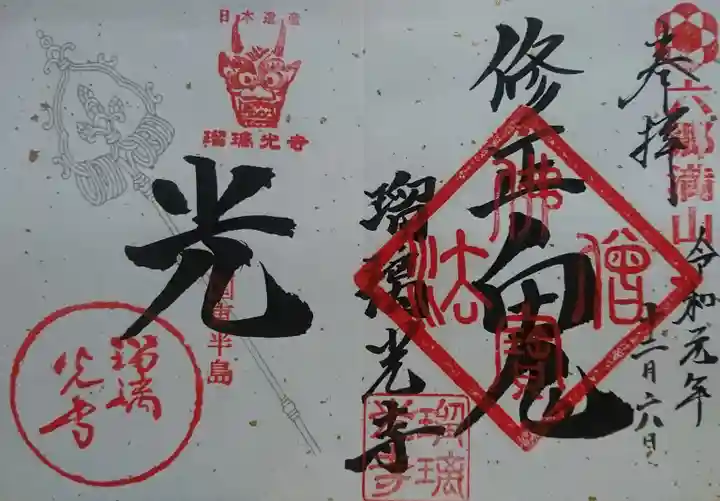 六郷満山
奉拝
令和元年
十二月六日
修正鬼
佛
法
僧
寶
瑠璃光寺
瑠璃光寺
日本遺産
瑠璃光寺
光
国東半島
瑠璃光寺